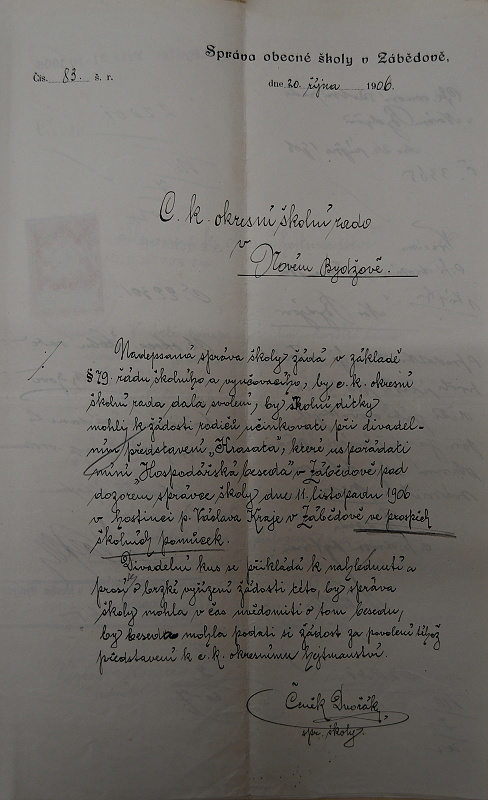 Správa obecné školy v Zábědově,
Čís. 83. š. r.
dne 20. října 1906.
C. k. okresní školní rado
v
Novém Bydžově.
Nadepsaná správa školy žádá v základě
§ 79. řádu školního a vyučovacího, by c. k. okresní
školní rada dala svolení, by školní dítky
mohly k žádosti rodičů účinkovati při divadel-
ním představení „Krasata", které uspořádati
míní „Hospodářská beseda" v Zábědově pod
dozorem správce školy dne 11. listopadu 1906
v hostinci p. Václava Kraje v Zábědově ve prospěch
školních pomůcek.
Divadelní kus se přikládá k nahlédnutí a
prosí o brzké vyřízení žádosti této, by správa
školy mohla v čas uvědomiti o tom besedu,
by beseda mohla podati si žádost za povolení téhož
představení k c. k. okresnímu hejtmanství.
Čeněk Dvořák,
spr. školy.